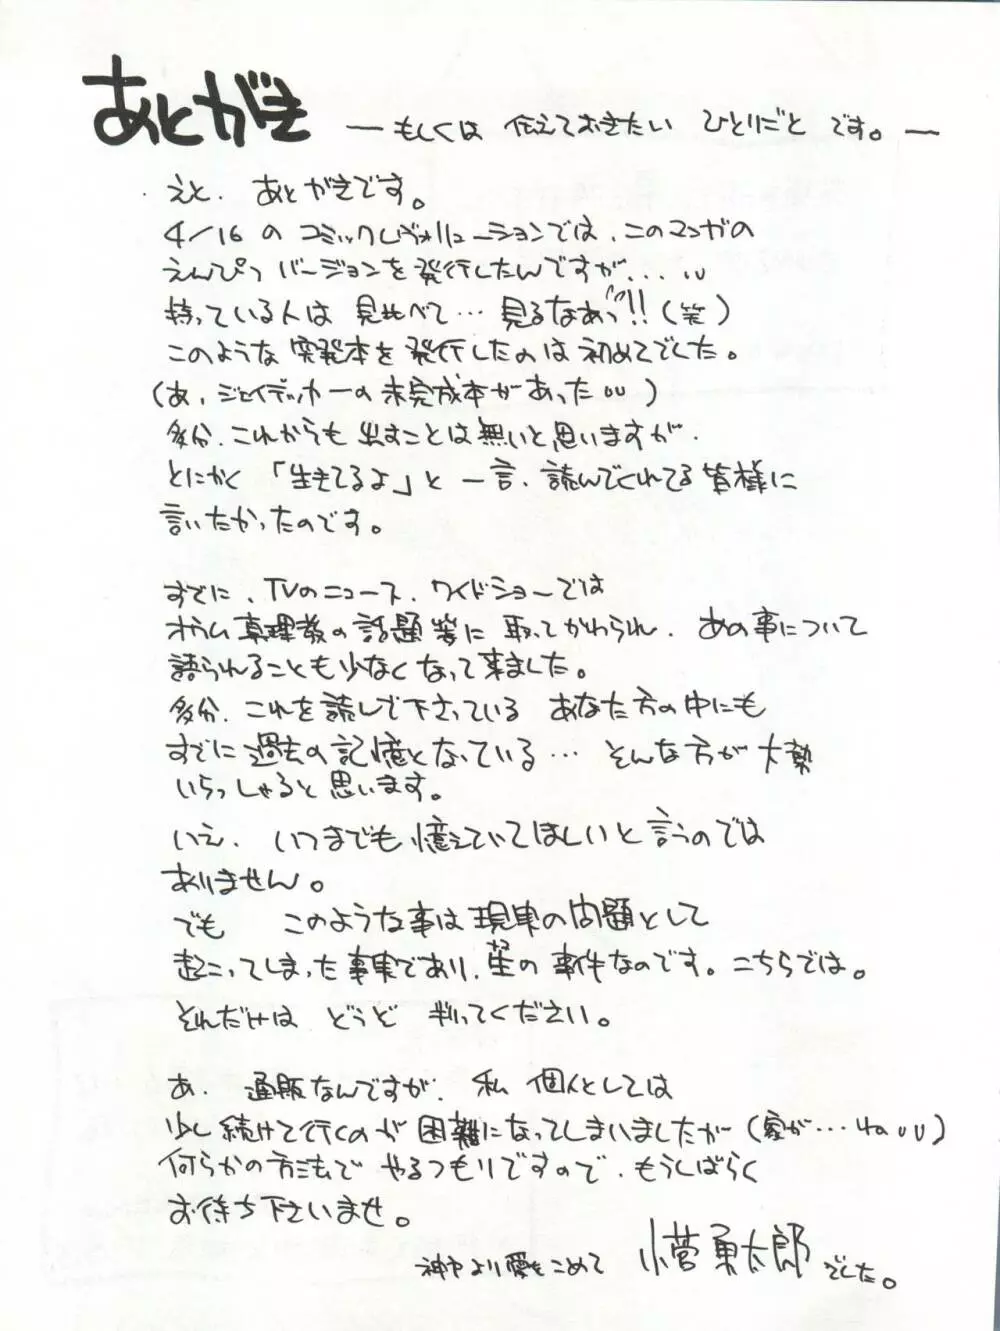 あとがき
― もしくは 伝えておきたい ひとりごと です。―
えと、あとがきです。
4/16 の コミックレヴォリューションでは、このマンガの
えんぴつ バージョンを発行したんですが、...、、
持っている人は 見比べて… 見るなあっ!!(笑)
このような 突発本を発行したのは初めてでした。
(あ、ジェイデッカーの未完成本があった、、)
多分、これからも出すことは無いと思いますが、
とにかく「生きてるよ」と 一言、読んでくれてる皆様に
言いたかったのです。
すでに、TVのニュース、ワイドショーでは
オウム真理教の話題等に 取ってかわられ、あの事について
語られることも少なくなって来ました。
多分、これを読んで下さっている あなた方の中にも
すでに過去の記憶となっている… そんな方が大勢
いらっしゃると思います。
いえ、いつまでも憶えていてほしいと言うのでは
ありません。
でも このような事は現実の問題として
起こってしまった事実であり、生の事件なのです。こちらでは。
それだけは どうど 判ってください。
あ、通販なんですが、私 個人としては
少し続けて行くのが困難になってしまいましたが(家が…ね、、)
何らかの方法で やるつもりですので、もうしばらく
お待ち下さいませ。
神戸より愛をこめて 小菅勇太郎 でした。